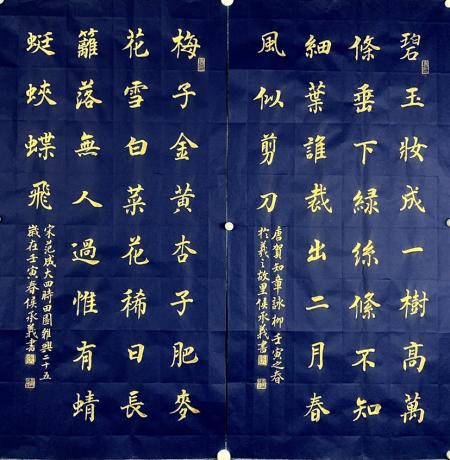 碧玉妝成一樹高萬
條垂下綠絲條不知
細葉誰裁出二月春
風似剪刀
唐賀知章詠柳壬寅之春
於羲之故里侯承義書
梅子金黃杏子肥麥
花雪白菜花稀日長
籬落無人過惟有蜻
蜓蛺蝶飛
宋范成大四時田園雜興二十五
歲在壬寅春侯承義書